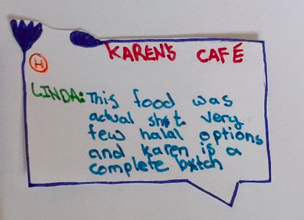 KAREN'S CAFÉ
H
LINDA: This food was
actual sh*t. Very
few halal options
and karen is a
complete b*tch